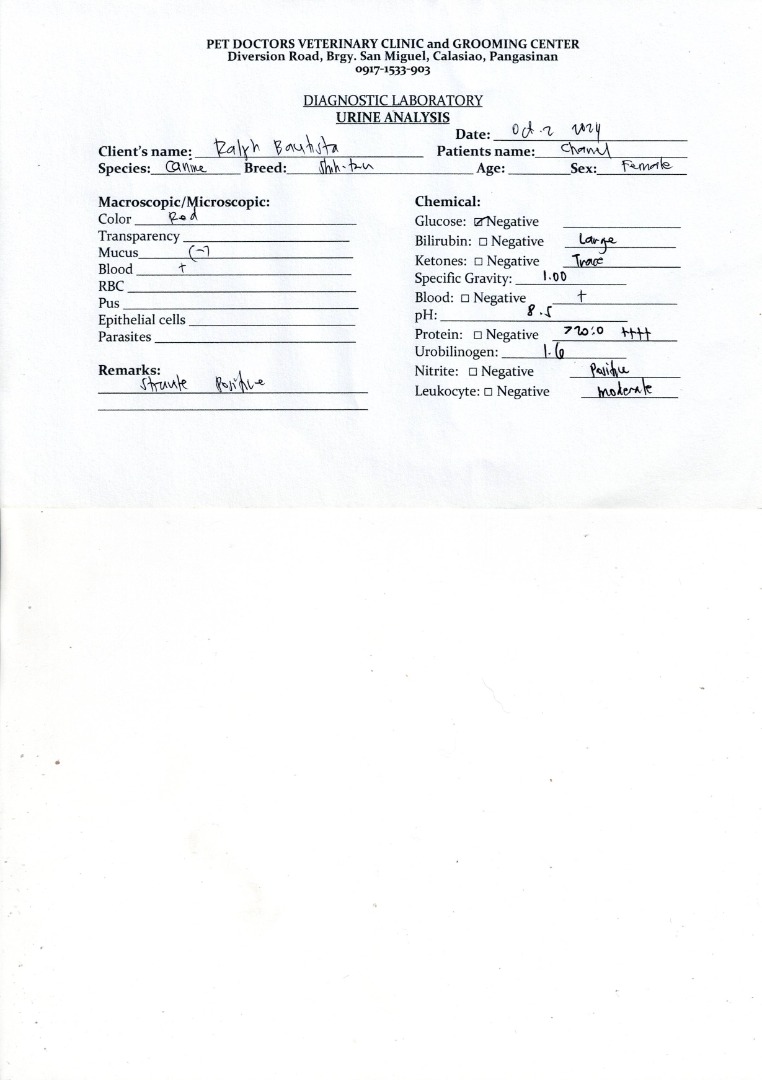 PET DOCTORS VETERINARY CLINIC and GROOMING CENTER
Diversion Road, Brgy. San Miguel, Calasiao, Pangasinan
0917-1533-903
DIAGNOSTIC LABORATORY
URINE ANALYSIS
Date: Oct. 2 2024
Client's name: Ralph Bautista Patients name: Chanel
Species: Canine Breed: Shih-tzu Age: Sex: Female
Macroscopic/Microscopic:
Color Red
Transparency
Mucus (-)
Blood +
RBC
Pus
Epithelial cells
Parasites
Remarks:
Positive
Chemical:
Glucose: ☑ Negative
Bilirubin: ☐ Negative Large
Ketones: ☐ Negative Trace
Specific Gravity: 1.00
Blood: ☐ Negative +
pH: 8.5
Protein: ☐ Negative ++++
Urobilinogen: 1.6
Nitrite: ☐ Negative Positive
Leukocyte: ☐ Negative moderate